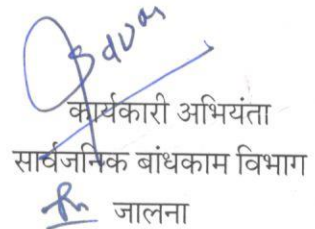 कार्यकारी अभियंता
सार्वजनिक बांधकाम विभाग
जालना